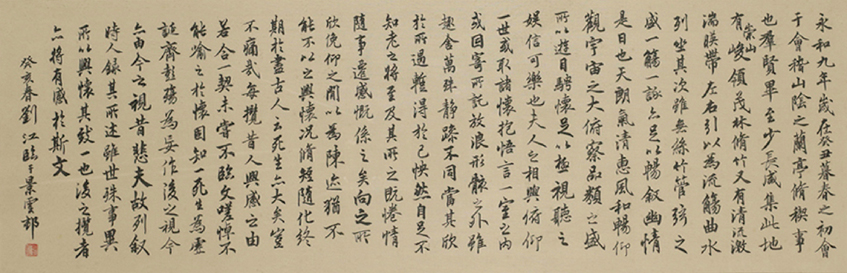 永和九年歲在癸丑暮春之初會
于會稽山陰之蘭亭脩稧事
也羣賢畢至少長咸集此地
有崇山峻領茂林脩竹又有清流激
湍暎帶左右引以為流觴曲水
列坐其次雖無絲竹管弦之
盛一觴一詠亦足以暢敘幽情
是日也天朗氣清惠風和暢仰
觀宇宙之大俯察品類之盛
所以遊目騁懷足以極視聽之
娛信可樂也夫人之相與俯仰
一世或取諸懷抱悟言一室之內
或因寄所託放浪形骸之外雖
趣舍萬殊靜躁不同當其欣
於所遇暫得於己怏然自足不
知老之將至及其所之既惓情
隨事遷感慨係之矣向之所
欣俛仰之閒以為陳迹猶不
能不以之興懷況脩短隨化終
期於盡古人云死生亦大矣豈
不痛哉每攬昔人興感之由
若合一契未嘗不臨文嗟悼不
能喻之於懷固知一死生為虛
誕齊彭殤為妄作後之視今
亦由今之視昔悲夫故列敘
時人錄其所述雖世殊事異
所以興懷其致一也後之攬者
亦將有感於斯文
癸亥春劉江臨于景雲邨